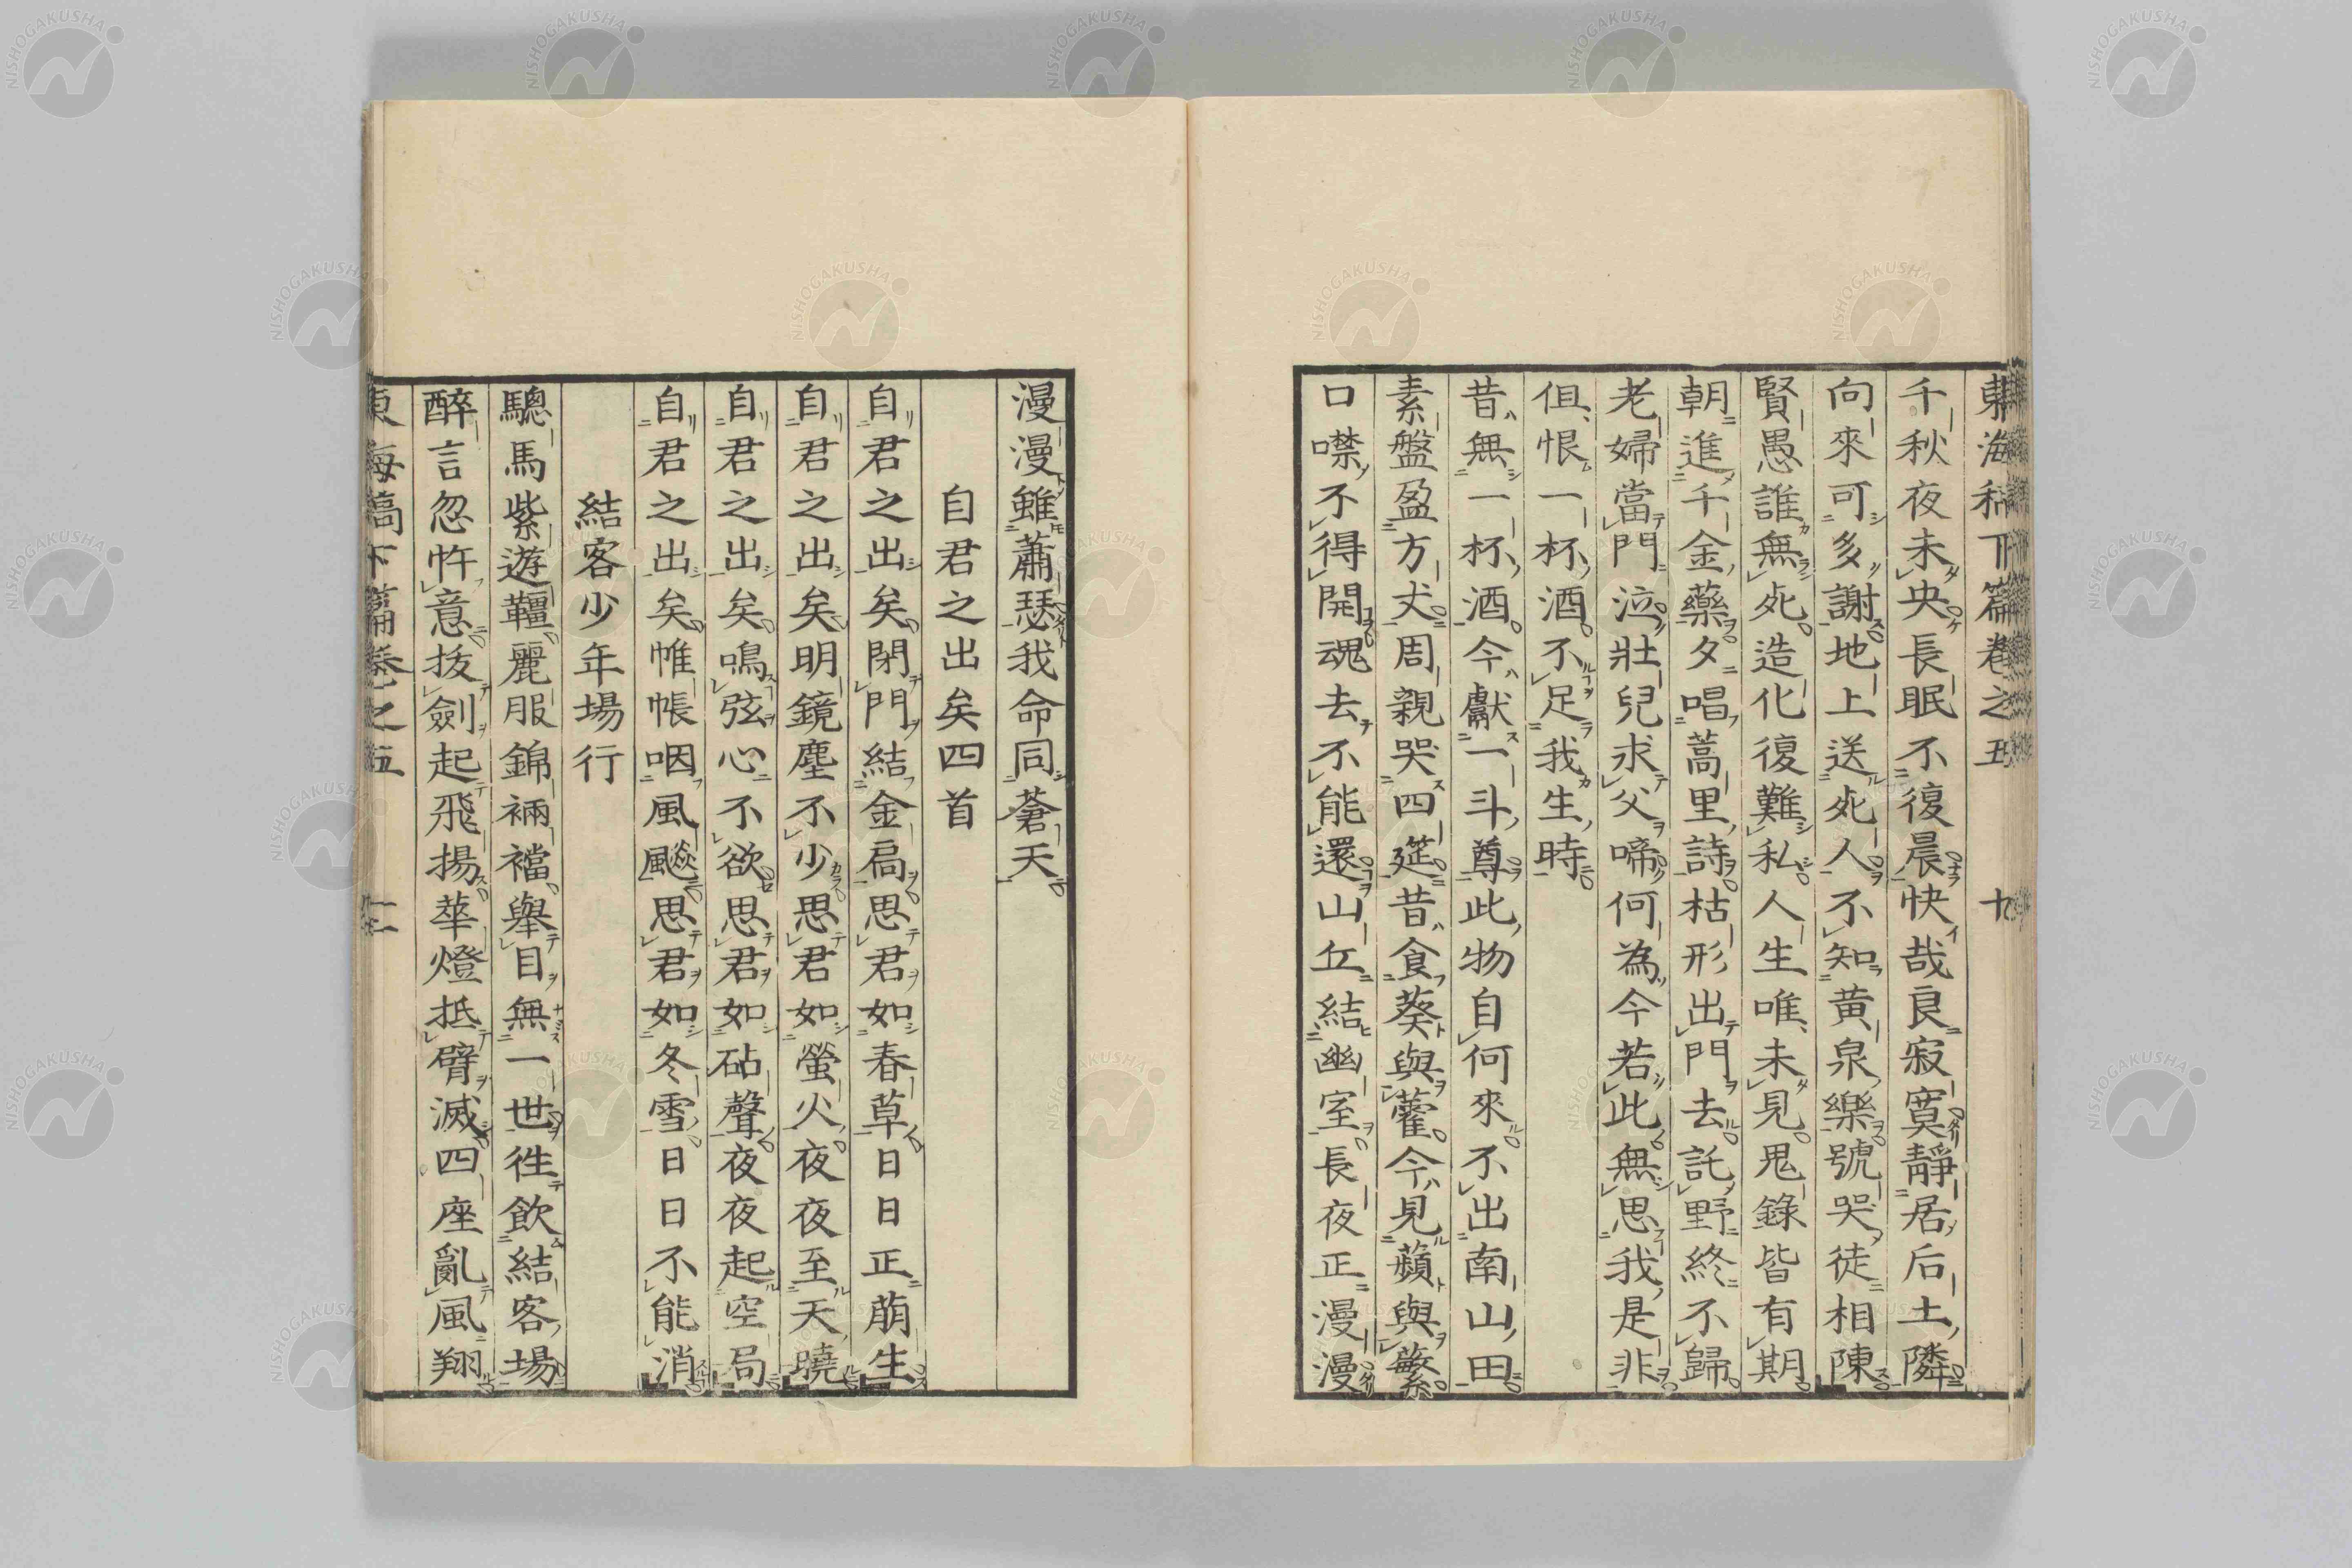 東海稿下篇卷之五 十
千秋夜未央長眠不復晨快哉良寂寞靜居后土隣
向來可多謝地上送死人不知黃泉樂號哭徒相陳
賢愚誰無死造化復難私人生唯未見鬼錄皆有期
朝進千金藥夕唱蒿里詩枯形出門去託野終不歸
老婦當門泣壯兒求父啼何為今若此無思我是非
但恨一杯酒不足我生時
昔無一杯酒今獻一斗尊此物自何來不出南山田
素盤盈方丈周親哭四筵昔食葵與藿今見蘋與蘩
口噤不得開魂去不能還山丘結幽室長夜正漫漫
漫漫雖蕭瑟我命同蒼天
自君之出矣四首
自君之出矣閉門結金扃思君如春草日日正萠生
自君之出矣明鏡塵不少思君如螢火夜夜至天曉
自君之出矣鳴弦心不欲思君如砧聲夜夜起空局
自君之出矣帷帳咽風飈思君如冬雪日日不能消
結客少年場行
驄馬紫遊韁麗服錦裲襠舉目無一世徃飲結客場
醉言忽忤意拔劍起飛揚華燈抵臂滅四座亂風翔
東海稿下篇卷之五